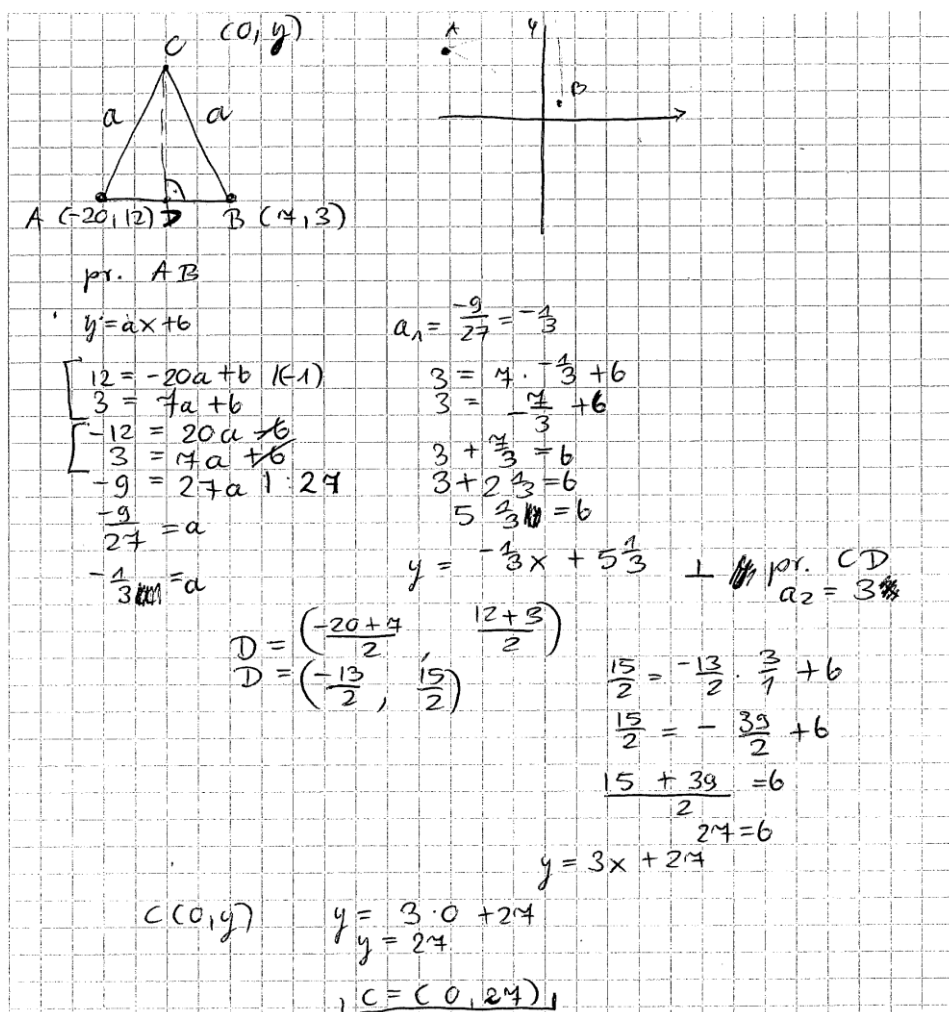 C (0, y)
a a
A (-20, 12) D B (7, 3)
A y
B
pr. AB
y = ax + b
12 = -20a + b |(-1)
3 = 7a + b
-12 = 20a - b
3 = 7a + b
-9 = 27a | : 27
-9/27 = a
-1/3 = a
a₁ = -9/27 = -1/3
3 = 7 · -1/3 + b
3 = -7/3 + b
3 + 7/3 = b
3 + 2 1/3 = b
5 1/3 = b
y = -1/3 x + 5 1/3 ⊥ pr. CD
a₂ = 3
D = (-20+7/2 , 12+3/2)
D = (-13/2 , 15/2)
15/2 = -13/2 · 3/1 + b
15/2 = - 39/2 + b
15 + 39/2 = b
27 = b
y = 3x + 27
C (0, y) y = 3 · 0 + 27
y = 27
C = (0, 27)